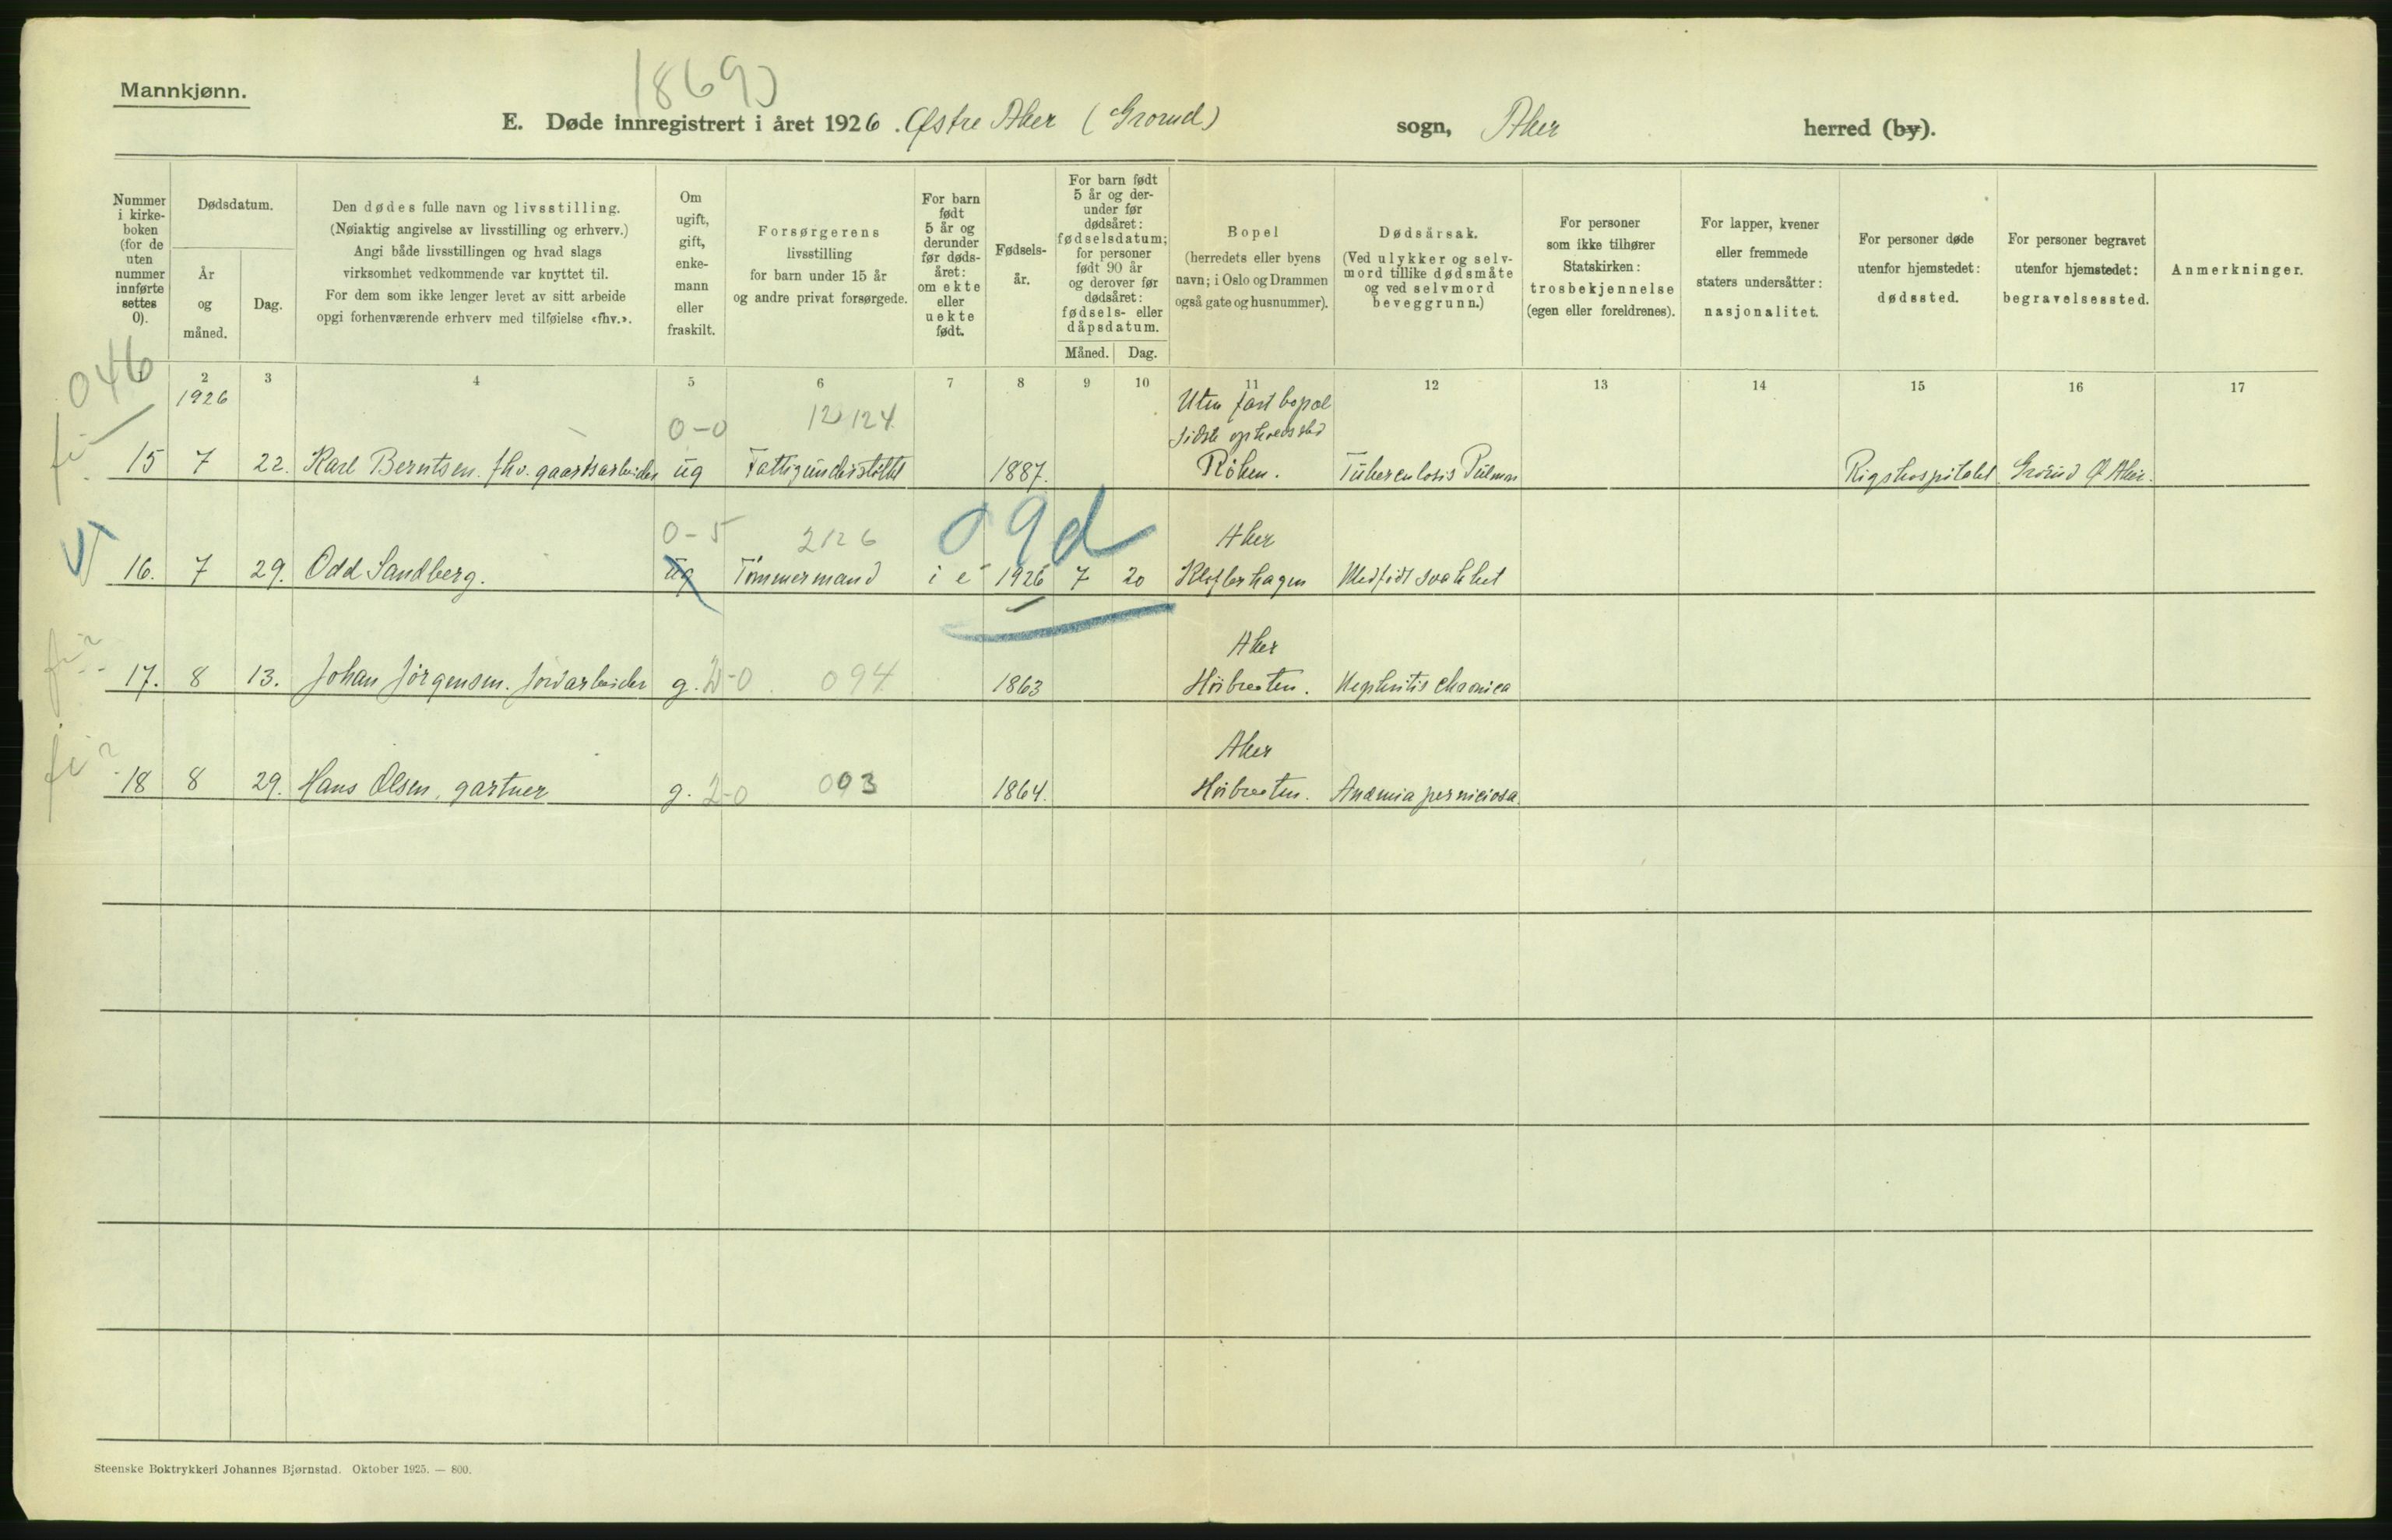 Mannkjønn.
1869)
E. Døde innregistrert i året 1926. Østre Aker (Grorud) sogn, Aker herred (by).
Nummer i kirke-boken (for de uten nummer innførte settes 0).
Dødsdatum.
År og måned.
Dag.
Den dødes fulle navn og livsstilling.
(Nøiaktig angivelse av livsstilling og erhverv.)
Angi både livsstillingen og hvad slags
virksomhet vedkommende var knyttet til.
For dem som ikke lenger levet av sitt arbeide
opgi forhenværende erhverv med tilføielse «fhv.».
Om ugift, gift, enke-mann eller fraskilt.
Forsørgerens
livsstilling
for barn under 15 år
og andre privat forsørgede.
For barn født 5 år og derunder før døds-året: om ekte eller uekte født.
Fødsels-år.
For barn født 5 år og der-under før dødsåret: fødselsdatum; for personer født 90 år og derover før dødsåret: fødsels- eller dåpsdatum.
Måned. Dag.
Bopel
(herredets eller byens
navn; i Oslo og Drammen
også gate og husnummer).
Dødsårsak.
(Ved ulykker og selv-
mord tillike dødsmåte
og ved selvmord
beveggrunn.)
For personer
som ikke tilhører
Statskirken:
trosbekjennelse
(egen eller foreldrenes).
For lapper, kvener
eller fremmede
staters undersåtter:
nasjonalitet.
For personer døde
utenfor hjemstedet:
dødssted.
For personer begravet
utenfor hjemstedet:
begravelsessted.
Anmerkninger.
1 2 3 4 5 6 7 8 9 10 11 12 13 14 15 16 17
046
1926
0-0 12124 Uten fast bopæl
Sidste opholdssted
15 7 22. Karl Berntsen. fhv. gaardsarbeider ug Fattigunderstøttet 1887. Røken. Tuberculosis Pulmon Rigshospitalet Grorud Ø Aker.
0-5 2126 09d Aker
16. 7 29. Odd Sandberg. ug Tømmermand i e 1926 7 20 Kløfterhagen Medfødt svakhet
Aker
17. 8 13. Johan Jörgensen. Jordarbeider g. 2-0 094 1863 Höibraaten. Nephritis chronica
Aker
18 8 29. Hans Olsen, gartner g. 2-0 093 1864. Höibraaten. Anæmia perniciosa
Steenske Boktrykkeri Johannes Bjørnstad. Oktober 1925. — 800.